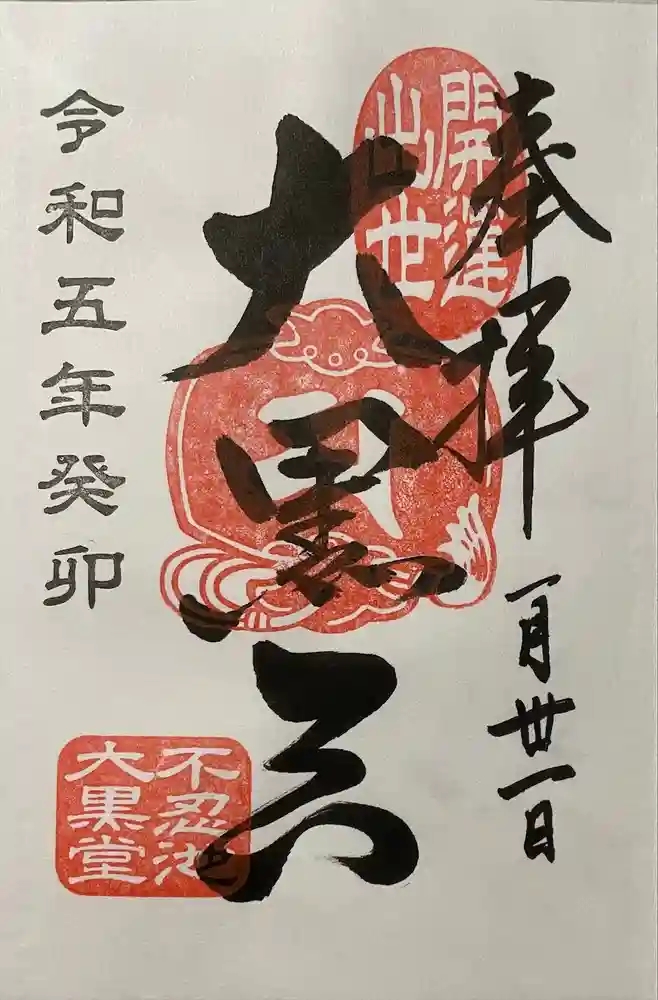 奉拝
一月卅一日
開運
出世
大黒天
令和五年癸卯
不忍池
大黒堂